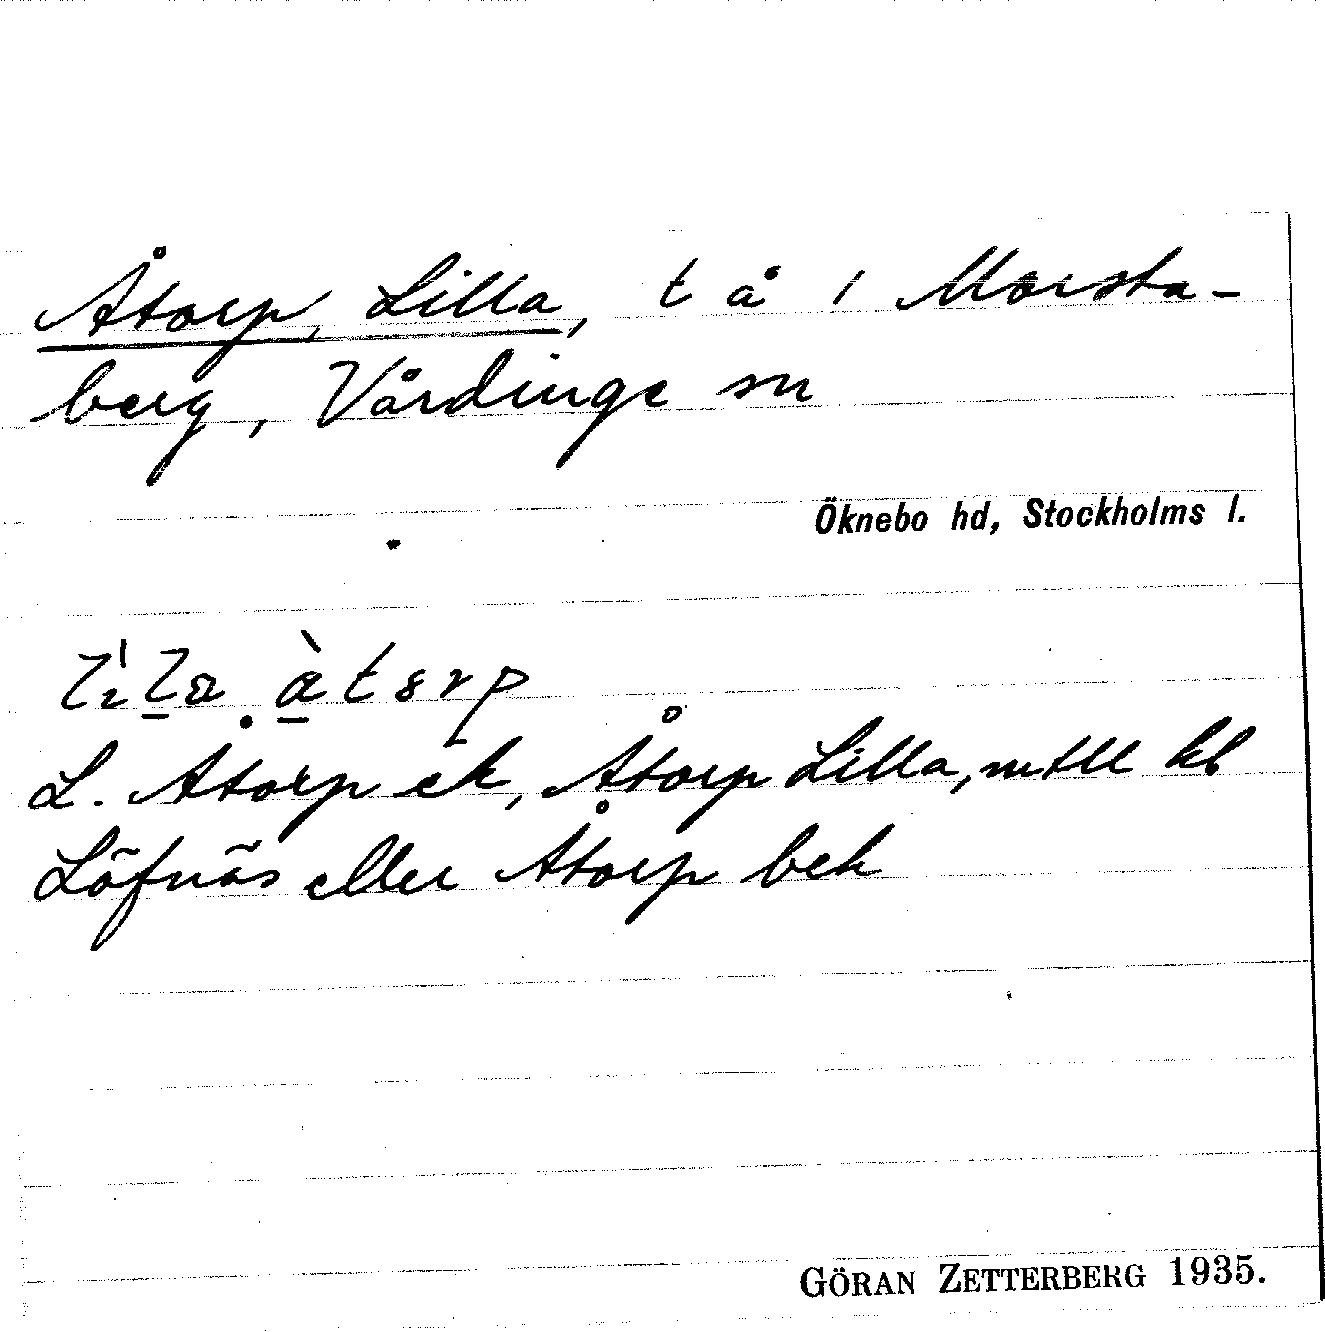 Åtorp, Lilla, t å i Morsta-
berg, Vårdinge sn
Öknebo hd, Stockholms l.
L. Åtorp ek, Åtorp Lilla, mtll kb
Löfnäs eller Åtorp bek
GÖRAN ZETTERBERG 1935.